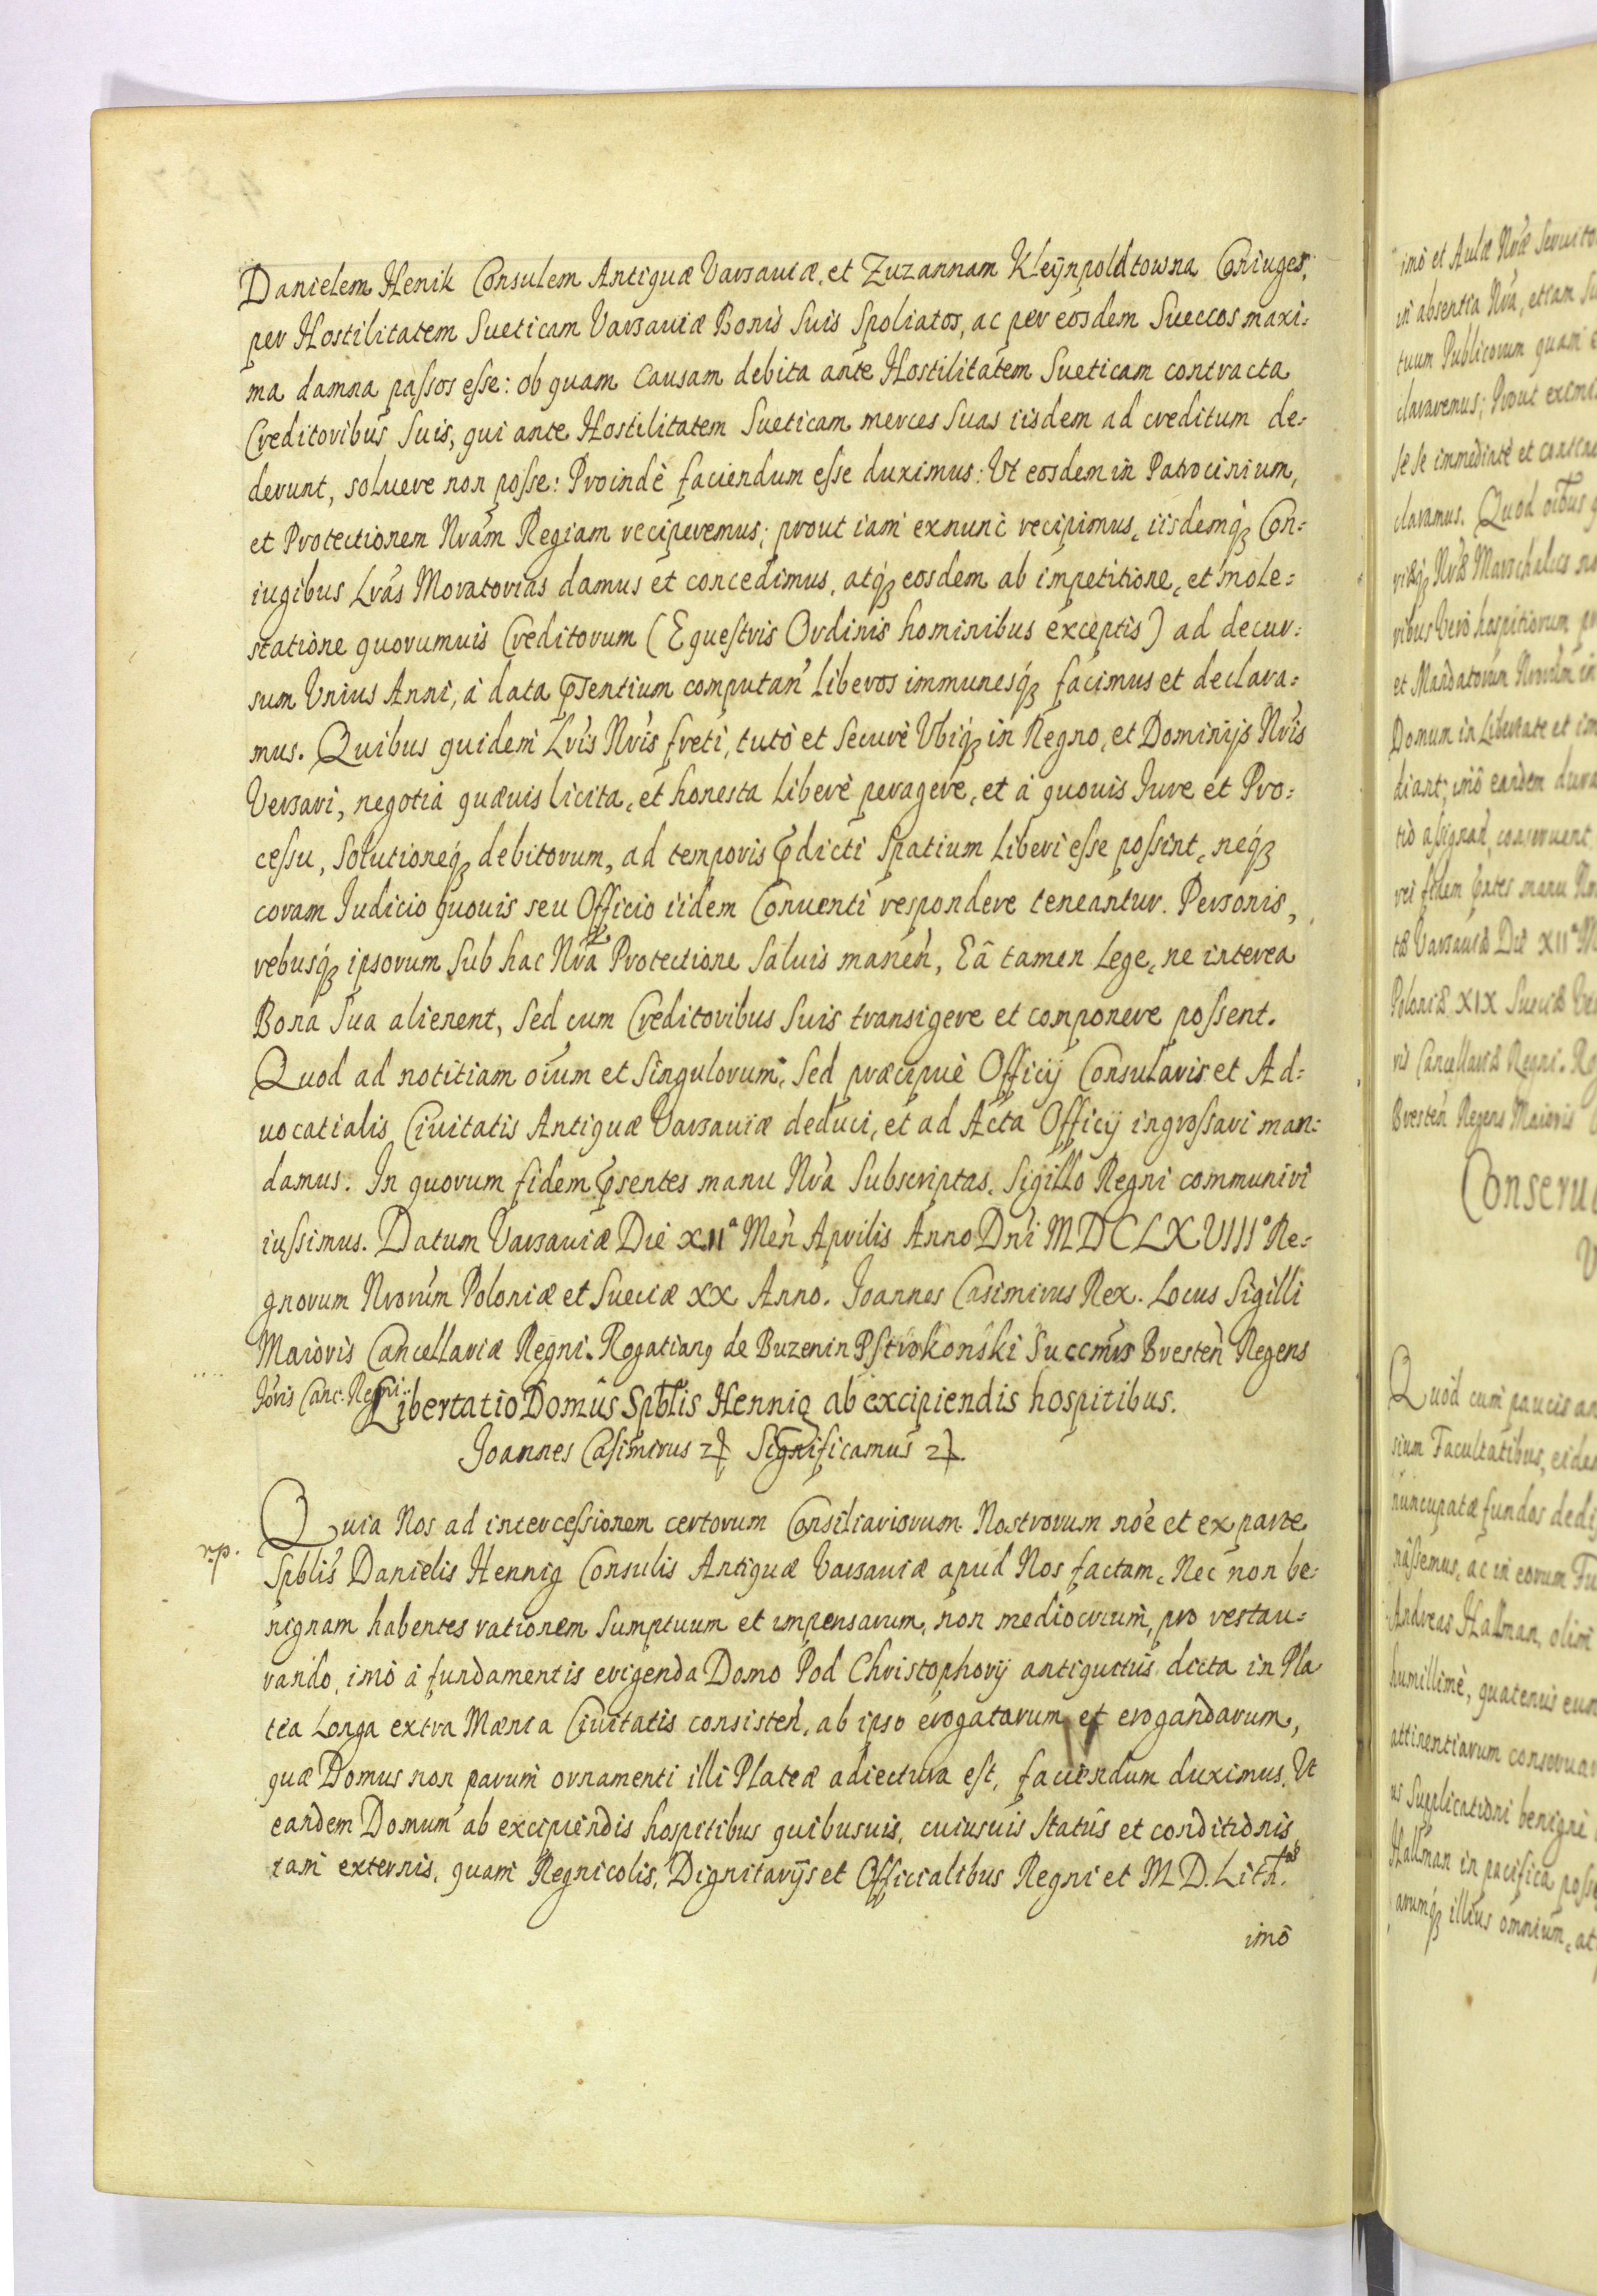 Danielem Henik Consulem Antiquæ Varsauiæ, et Zuzannam Kleÿnpoldtowna Coniuges,
per Hostilitatem Sueticam Varsauiæ Bonis Suis Spoliatos, ac per eosdem Sueccos maxi:
ma damna passos esse: ob quam causam debita ante Hostilitatem Sueticam contracta
Creditoribus Suis, qui ante Hostilitatem Sueticam merces Suas iisdem ad creditum de:
derunt, soluere non posse: Proindè faciendum esse duximus: Ut eosdem in Patrocinium,
et Protectionem Nrám Regiam reciperemus; prout iam exnunc recipimus, iisdemq́ꝫ Con:
iugibus Lrás Moratorias damus et concedimus, atq́ꝫ eosdem ab impetitione, et mole:
statione quorumuis Creditorum (Equestris Ordinis hominibus exceptis) ad decur:
sum Unius Anni, à data p̃sentium computań liberos immunesq́ꝫ facimus et declara:
mus. Quibus quidem Lrís Nrís freti, tutò et Securè Ubiq́ꝫ in Regno, et Dominijs Nrís
Versari, negotia quæuis licita, et honesta liberè peragere, et à quouis Iure et Pro:
cessu, Solutioneq́ꝫ debitorum, ad temporis p̃dicti Spatium liberi esse possint, neq́ꝫ
coram Iudicio quouis seu Officio iidem Conuenti respondere teneantur. Personis,
rebusq́ꝫ ipsorum Sub hac Nrá Protectione Saluis maneń, Eâ tamen Lege, ne interea
Bona Sua alienent, Sed cum Creditoribus Suis transigere et componere possent.
Quod ad notitiam oíum et Singulorum, Sed præcipuè Officij Consularis et Ad:
uocatialis Ciuitatis Antiquæ Varsauiæ deduci, et ad Acta Officij ingrossari man:
damus. In quorum fidem p̃sentes manu Nrá Subscriptas, Sigillo Regni communiri
iussimus. Datum Varsauiæ Die XIIª Meń Aprilis Anno Dńi MDCLXVIIIº Re:
gnorum Nrorúm Poloniæ et Sueciæ XX Anno. Joannes Casimirus Rex. Locus Sigilli
Maioris Cancellariæ Regni. Rogatianꝯ de Buzenin Pstrokoński Succmŕs Bresteń Regens
Joris Canc. Regni.
Libertatio Domûs Spblis Hennig ab excipiendis hospitibus.
Joannes Casimirus ꝛƚ Significamus ꝛƚ.
Quia Nos ad intercessionem certorum Consiliariorum Nostrorum nóe et ex parte
rp. Spblís Danielis Hennig Consulis Antiquæ Varsauiæ apud Nos factam, Nec non be:
nignam habentes rationem Sumptuum et impensarum, non mediocrium, pro restau:
rando, imò à fundamentis erigenda Domo Pod Christophorÿ antiquitus dicta in Pla
tea Longa extra Mænia Ciuitatis consisteń, ab ipso erogatarum et erogandarum,
quæ Domus non parum ornamenti illi Plateæ adiectura est, faciendum duximus, Ut
eandem Domum ab excipiendis hospitibus quibusuis, cuiusuis Statûs et conditionis
tam externis, quam Regnicolis, Dignitarÿs et Officialibus Regni et M. D. Lith.
imò
imò et Aulæ Nræ
in absentia Nrá, etiam
tuum Publicorum quam
clararemus; Prout
Se Se immediatè et
claramus. Quod oibus
Marschalcis
ribus Verò hospitiorum
et Mandatorum Nrorúm in
Domum in Libertate et
diant; imò eandem
conseruent
rei fidem manu
Varsauiæ Die XIIª
Poloniæ XIX Sueciæ
ris Cancellariæ Regni.
Bresteń Regens Maioris
Quod cum paucis
sium Facultatibus,
nuncupatæ fundos
nâssemus, ac in eorum
Andreas Hallman, olim
humillimè, quatenus eum
attinentiarum
us Supplicationi benignè
Hallman in pacifica
arumq́ꝫ illius omnium,